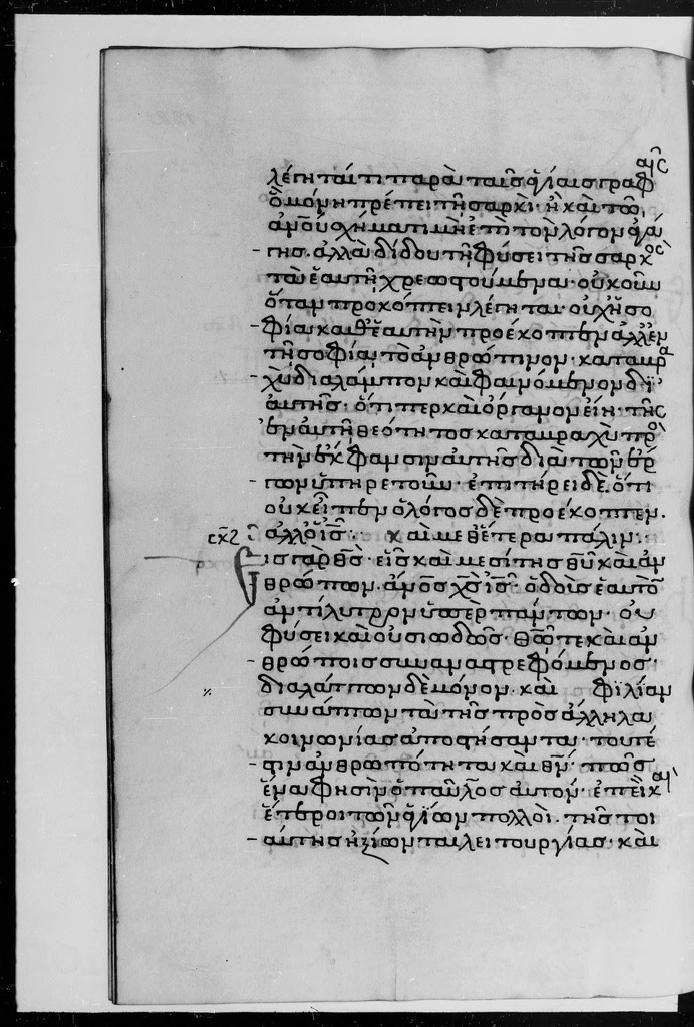 λέγηται τι παρὰ ταῖς θείαις γραφαῖς
ὃ μόνῃ πρέπει τῇ σαρκί· ἢ καὶ τῷ
τὸν λόγον
της. ἀλλὰ δίδου τῇ φύσει τῆς σαρκὸς
τὰ ἑαυτῇ χρεωστούμενα· οὐκοῦν
ὅταν προκόπτειν λέγηται· οὐχ ἡ σο
φία καθ' ἑαυτὴν προέκοπτεν ἀλλ' ἐν
τῇ σοφίᾳ, τὸ ἀνθρώπινον· καταβρα
χὺ διαλάμπον καὶ φαινόμενον δι'
αὐτῆς· ὅτιπερ καὶ ὄργανον εἴη τῆς
ἐν αὐτῇ θεότητος καταβραχὺ πρὸ
τὴν ἔκφανσιν αὐτῆς διὰ τῶν ἔρ
γων ὑπηρετοῦν· ἐπιτήρει δὲ. ὅτι
οὐκ εἶπεν ὁ λόγος δὲ προέκοπτεν.
ἀλλ' ὁ ἰς: καὶ μεθ' ἕτερα πάλιν:
Εἷς γὰρ θς· εἷς καὶ μεσίτης θυ καὶ ἀν
θρώπων. ἀνος χς ἰς· ὁ δοὺς ἑαυτὸν
ἀντίλυτρον ὑπὲρ πάντων· οὐ
φύσει καὶ οὐσιωδῶς· θῶ τε καὶ ἀν
θρώποις συναναστρεφόμενος·
διαλάττων δὲ μόνον· καὶ φιλίαν
συνάπτων τὰ τῆς πρὸς ἄλληλα
κοινωνίας ἀποστήσαντα· τουτέ
στιν ἀνθρωπότητα καὶ θν· πῶς
ἕνα φησὶν ὁ παῦλος αὐτόν· ἐπεὶ καὶ
ἕτεροι τῶν ἁγίων πολλοὶ. τῆς τοι
αύτης ἠξίωνται λειτουργίας· καὶ